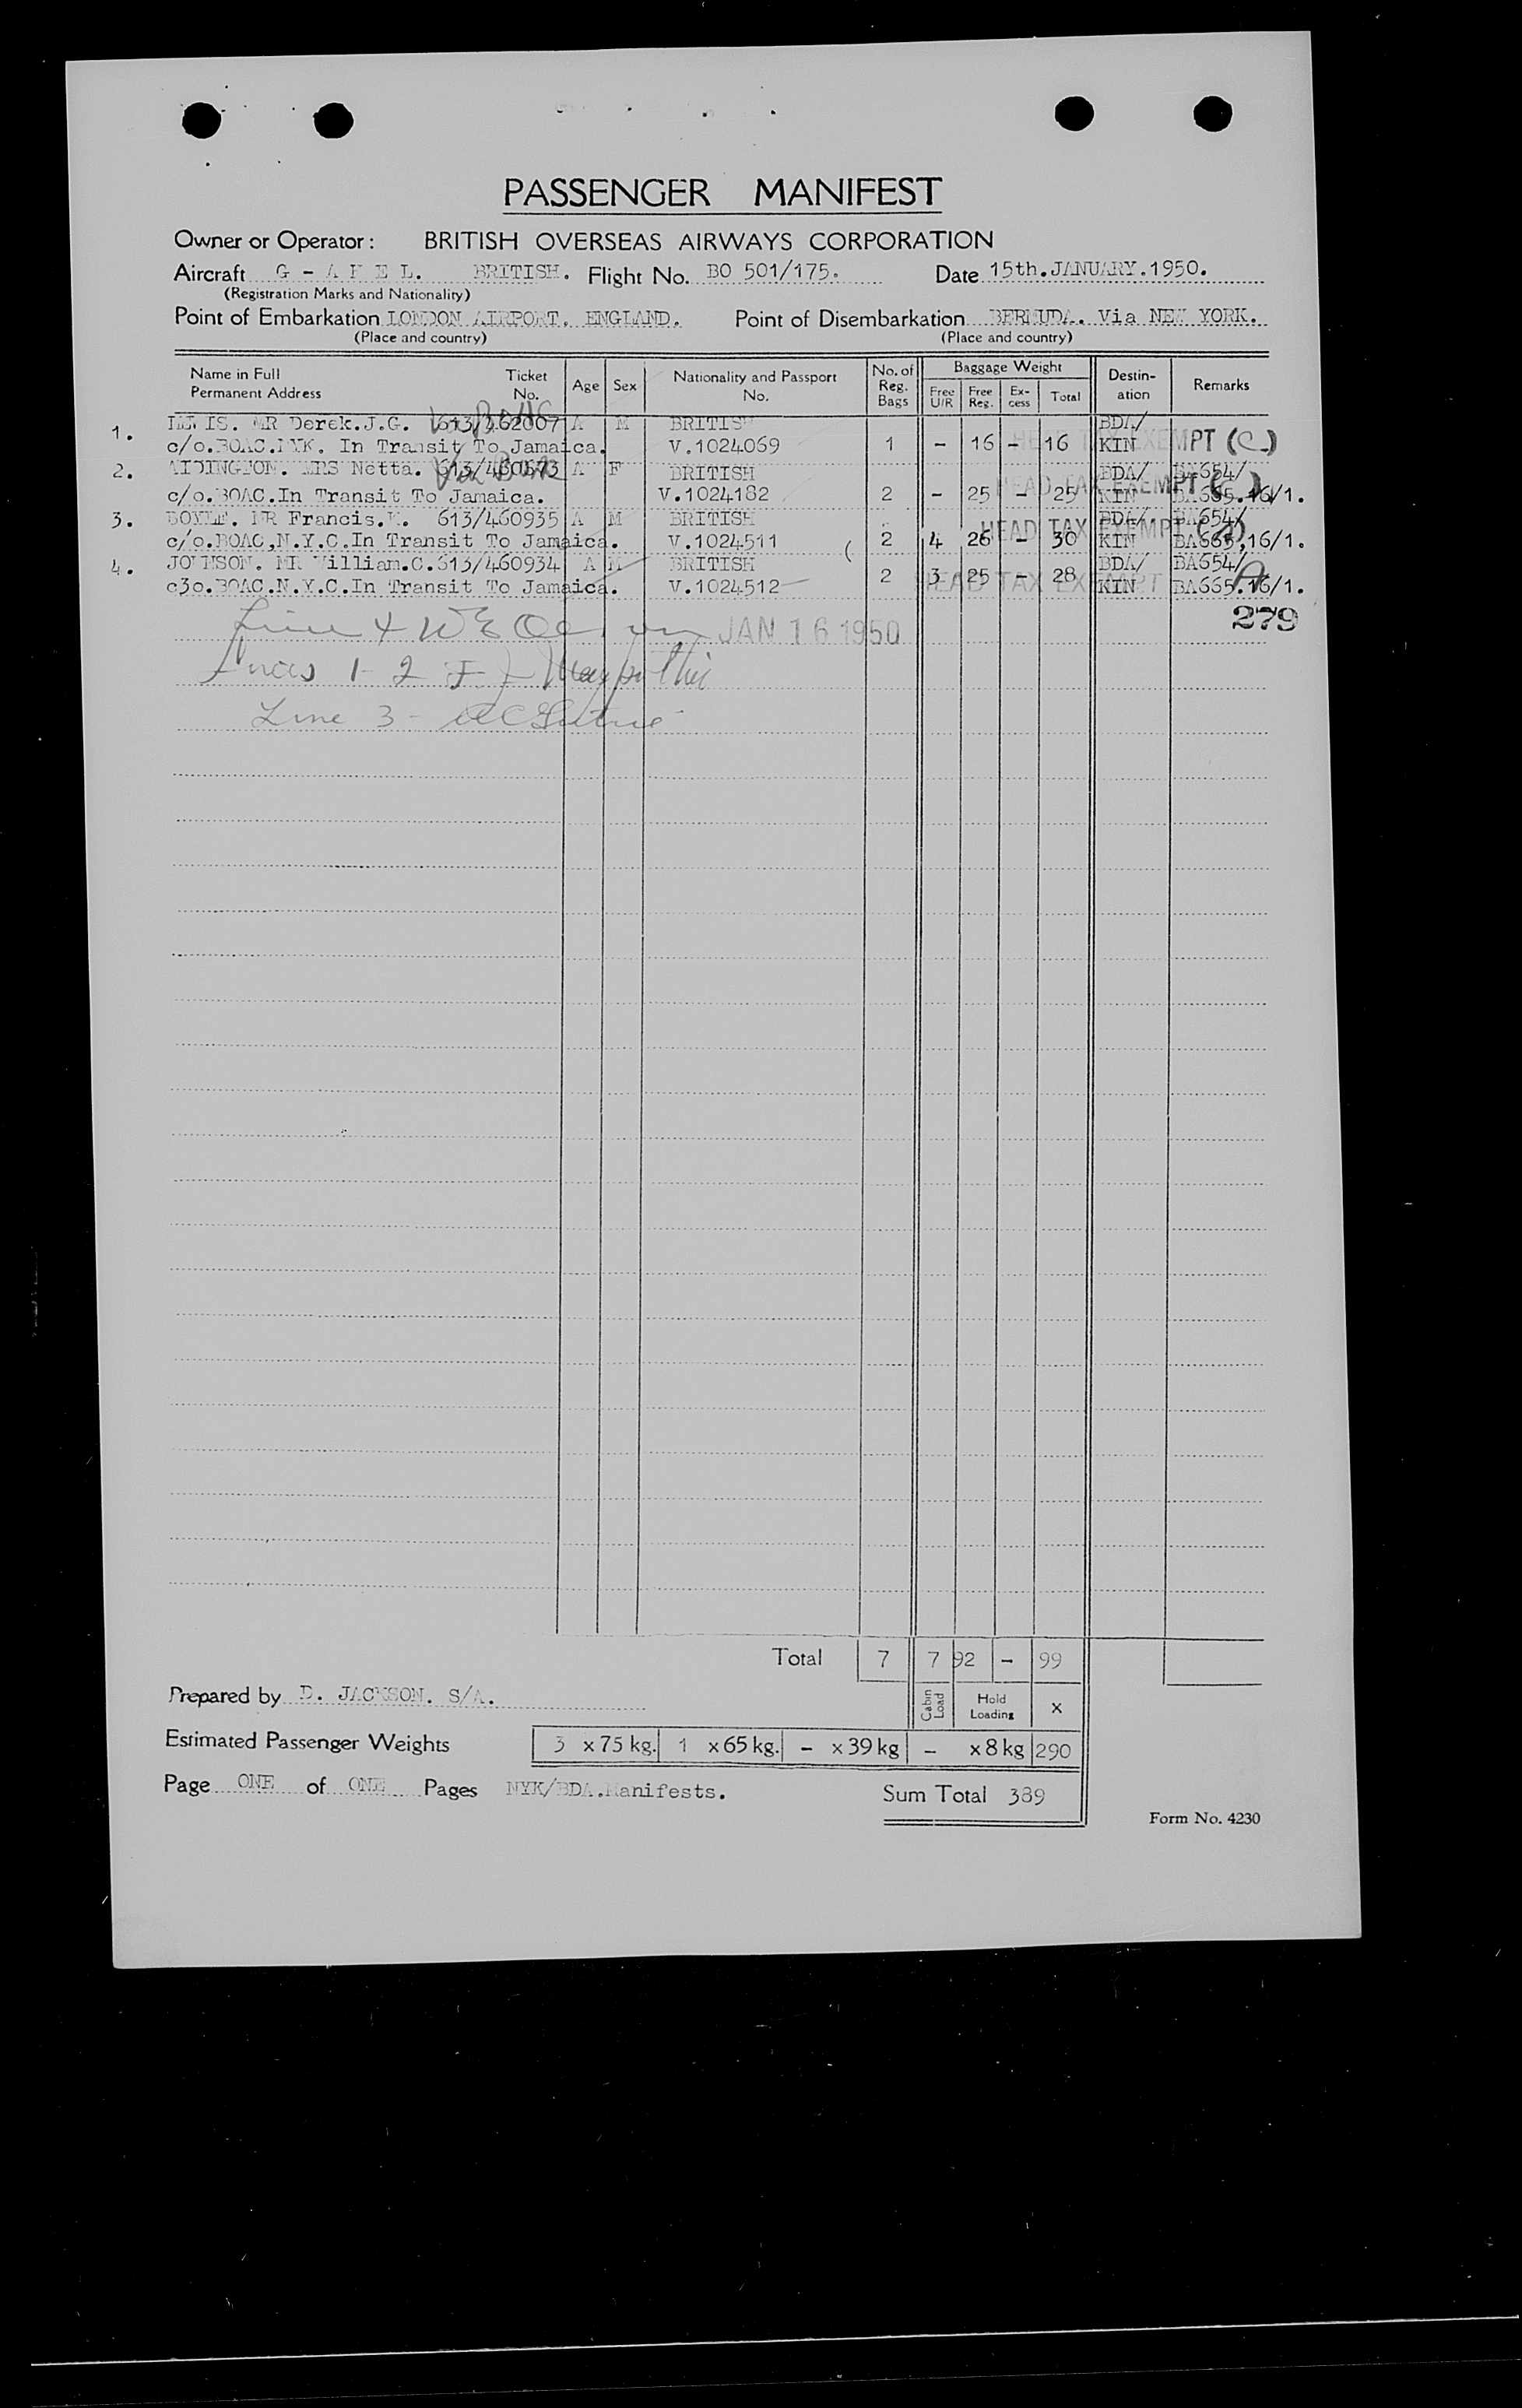 PASSENGER MANIFEST
Owner or Operator : BRITISH OVERSEAS AIRWAYS CORPORATION
Aircraft G - A K E L. BRITISH. Flight No. BO 501/175. Date 15th.JANUARY.1950.
(Registration Marks and Nationality)
Point of Embarkation LONDON AIRPORT. ENGLAND. Point of Disembarkation BERMUDA. Via NEW YORK.
(Place and country) (Place and country)
Name in Full Permanent Address Ticket No. Age Sex Nationality and Passport No. No. of Reg. Bags Baggage Weight Free U/R Free Reg. Ex-cess Total Destin-ation Remarks
1. LEWIS. MR Derek.J.G. 613/362007 A M BRITISH BDA/
c/o.BOAC.NYK. In Transit To Jamaica. V.1024069 1 - 16 - 16 KIN HEAD TAX EXEMPT (C)
2. MRS Netta. A F BRITISH BDA/ BA654/
c/o.BOAC.In Transit To Jamaica. V.1024182 2 - 25 - 25 KIN BA665.16/1. HEAD TAX EXEMPT
3. BOYLE. MR Francis. 613/460935 A M BRITISH BDA/ BA654/
c/o.BOAC,N.Y.C.In Transit To Jamaica. V.1024511 2 4 26 - 30 KIN BA665,16/1. HEAD TAX EXEMPT
4. JOHNSON. MR William.C.613/460934 A M BRITISH BDA/ BA654/
c3o.BOAC.N.Y.C.In Transit To Jamaica. V.1024512 2 3 25 - 28 KIN BA665.16/1. HEAD TAX EXEMPT
279
Line 4 JAN 16 1950
Lines 1 - 2
Line 3 -
Total 7 7 92 - 99
Prepared by D. JACKSON. S/A. Cabin Load Hold Loading x
Estimated Passenger Weights 3 x 75 kg. 1 x 65 kg. - x 39 kg - x 8 kg 290
Page ONE of ONE Pages NYK/BDA.Manifests. Sum Total 389
Form No. 4230